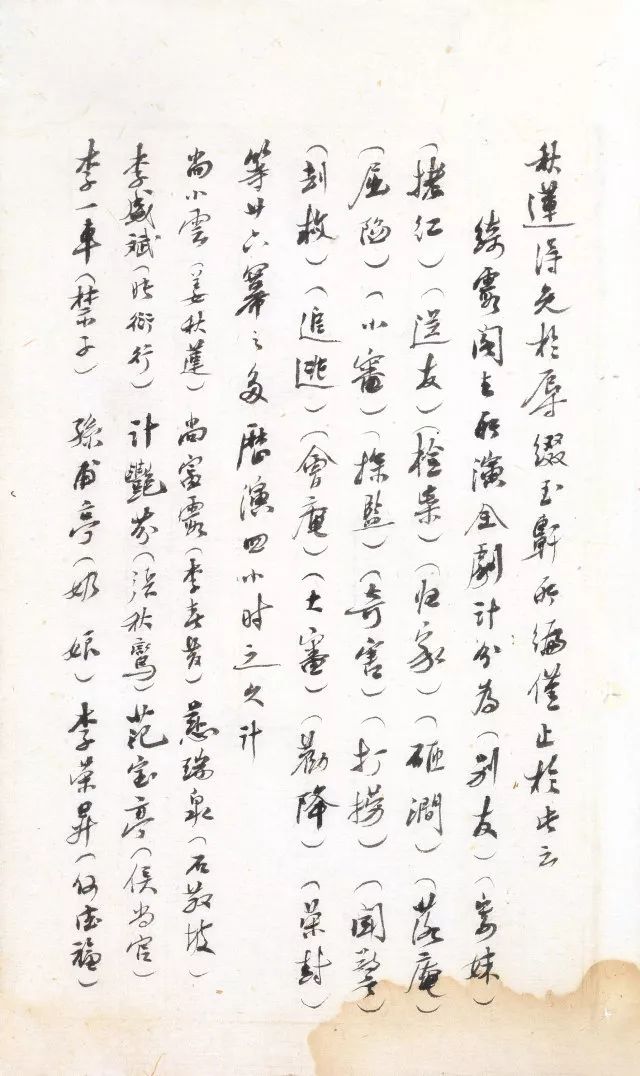 秋蓮得免於辱綴玉軒所編僅止於此云
綺霞閣主所演全劇計分為(別友)(寄妹)
(撈紅)(送友)(檢柴)(归家)(砸澗)(落庵)
(屈陷)(小審)(探監)(奇害)(打撈)(聞警)
(刦救)(追逃)(會庵)(大審)(勸降)(榮封)
等廿六幕之多歷演四小时之久计
尚小雲(姜秋蓮)尚富霞(李春發)慈瑞泉(石敬坡)
李盛斌(張衍行)計艷芬(張秋鸞)范宝亭(侯尚官)
李一車(禁子)孫甫亭(奶娘)李榮昇(何德福)